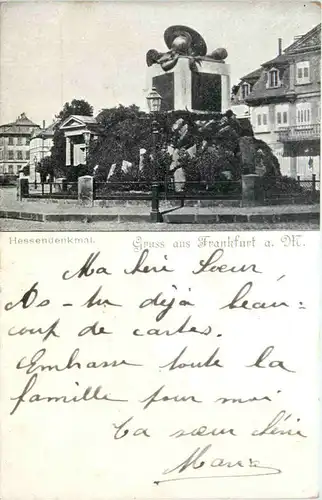 Hessendenkmal. Gruss aus Frankfurt a. M.
Ma chérie Soeur,
As-tu déjà beau=
coup de cartes.
Embrasse toute la
famille pour moi
Ta sœur chérie
Marie